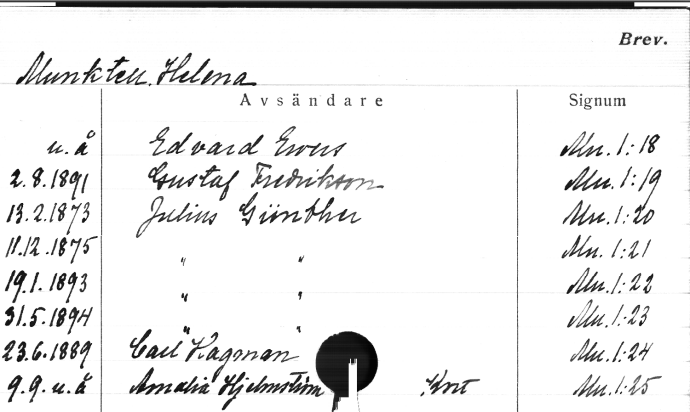 Brev.
Munktell, Helena
Avsändare Signum
u. å Edvard Evers Mu. 1:18
2.8.1891 Gustaf Fredrikson Mu. 1:19
13.2.1873 Julius Günther Mu. 1:20
11.12.1875 " " Mu. 1:21
19.1.1893 " " Mu. 1:22
31.5.1894 " " Mu. 1:23
23.6.1889 Carl Hagman Mu. 1:24
9.9. u. å Amalia Hjelmström Kort Mu. 1:25